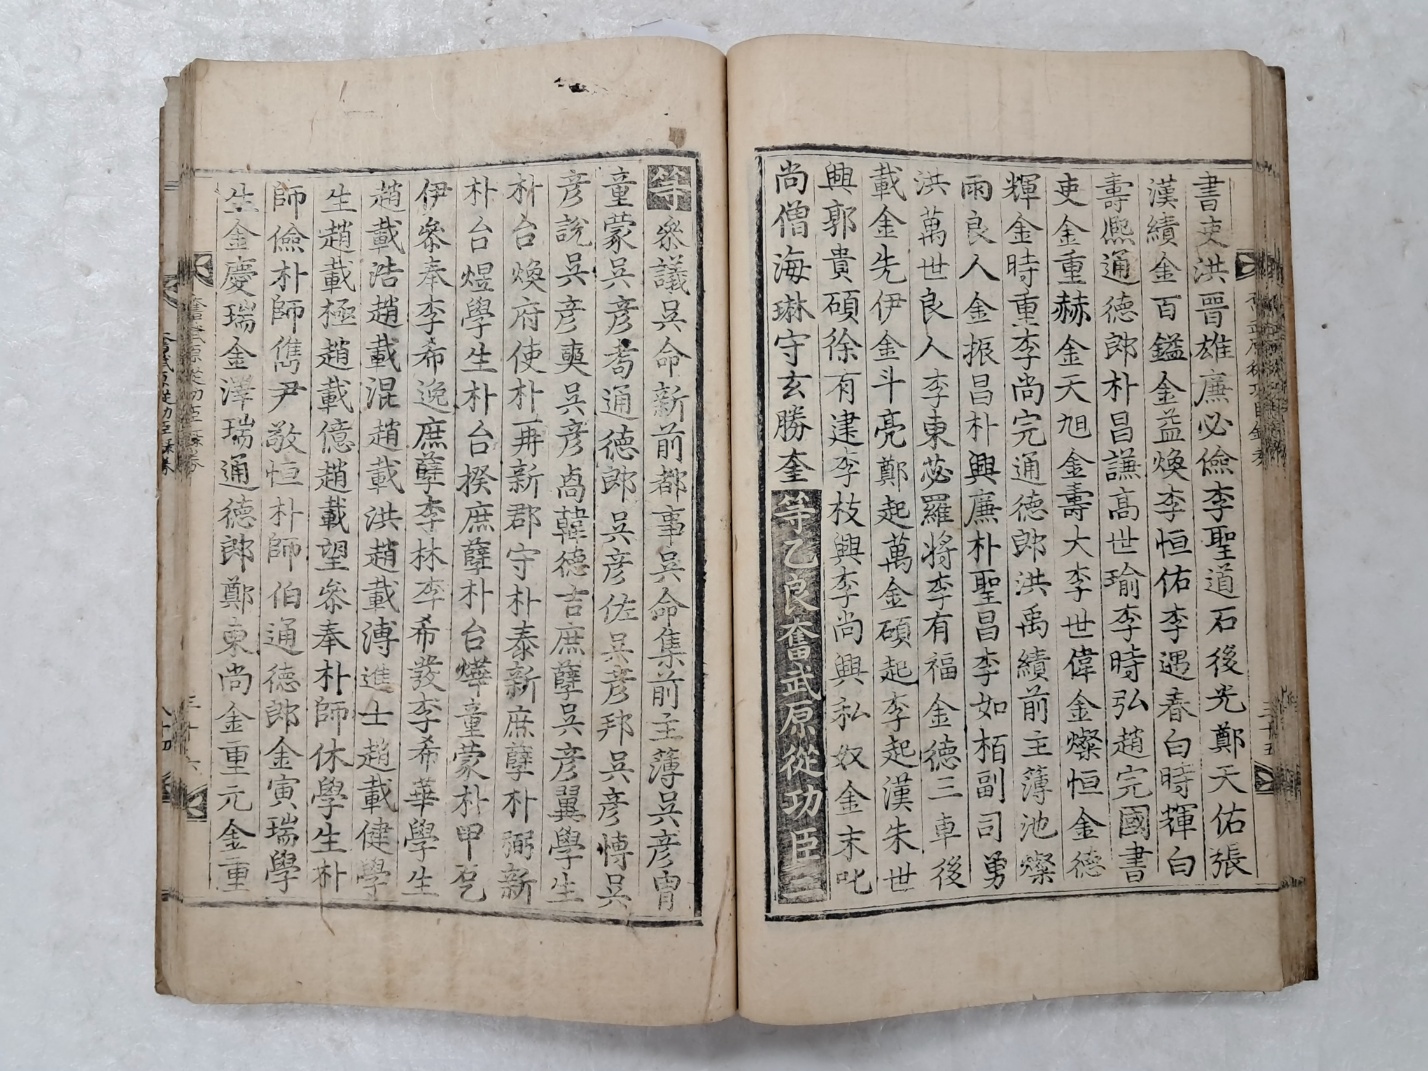 書吏洪晉雄廉必儉李聖道石後光鄭天佑張
漢績金百鎰金益煥李恒佑李遇春白時輝白
壽熙通德郎朴昌謙高世瑜李時弘趙完國書
吏金重赫金天旭金壽大李世偉金燦恒金德
輝金時重李尚完通德郎洪禹績前主簿池燦
雨良人金振昌朴興廉朴聖昌李如栢副司勇
洪萬世良人李東苾羅將李有福金德三車後
載金先伊金斗亮鄭起萬金碩起李起漢朱世
興郭貴碩徐有建李枝興李尚興私奴金末叱
尚僧海琳守玄勝奎等乙良奮武原從功臣二
等叅議吳命新前都事吳命集前主簿吳彦胄
童蒙吳彦耉通德郎吳彦佐吳彦邦吳彦愽吳
彦說吳彦奭吳彦卨韓德吉庶孽吳彦翼學生
朴台煥府使朴苒新郡守朴泰新庶孽朴弼新
朴台煜學生朴台揆庶孽朴台燁童蒙朴甲乭
伊叅奉李希逸庶孽李林李希發李希華學生
趙載浩趙載混趙載洪趙載溥進士趙載健學
生趙載極趙載億趙載望叅奉朴師休學生朴
師儉朴師儁尹敬恒朴師伯通德郎金寅瑞學
生金慶瑞金澤瑞通德郎鄭東尚金重元金重
三十六